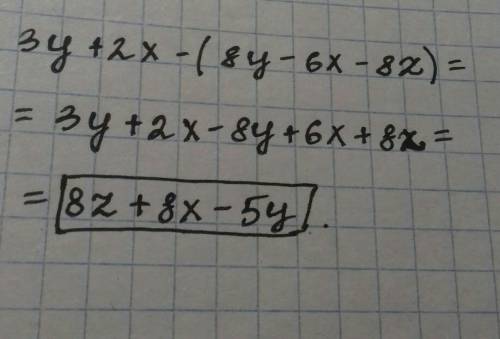 3y + 2x - ( 8y - 6x - 8z ) =
= 3y + 2x - 8y + 6x + 8z =
= 8z + 8x - 5y .